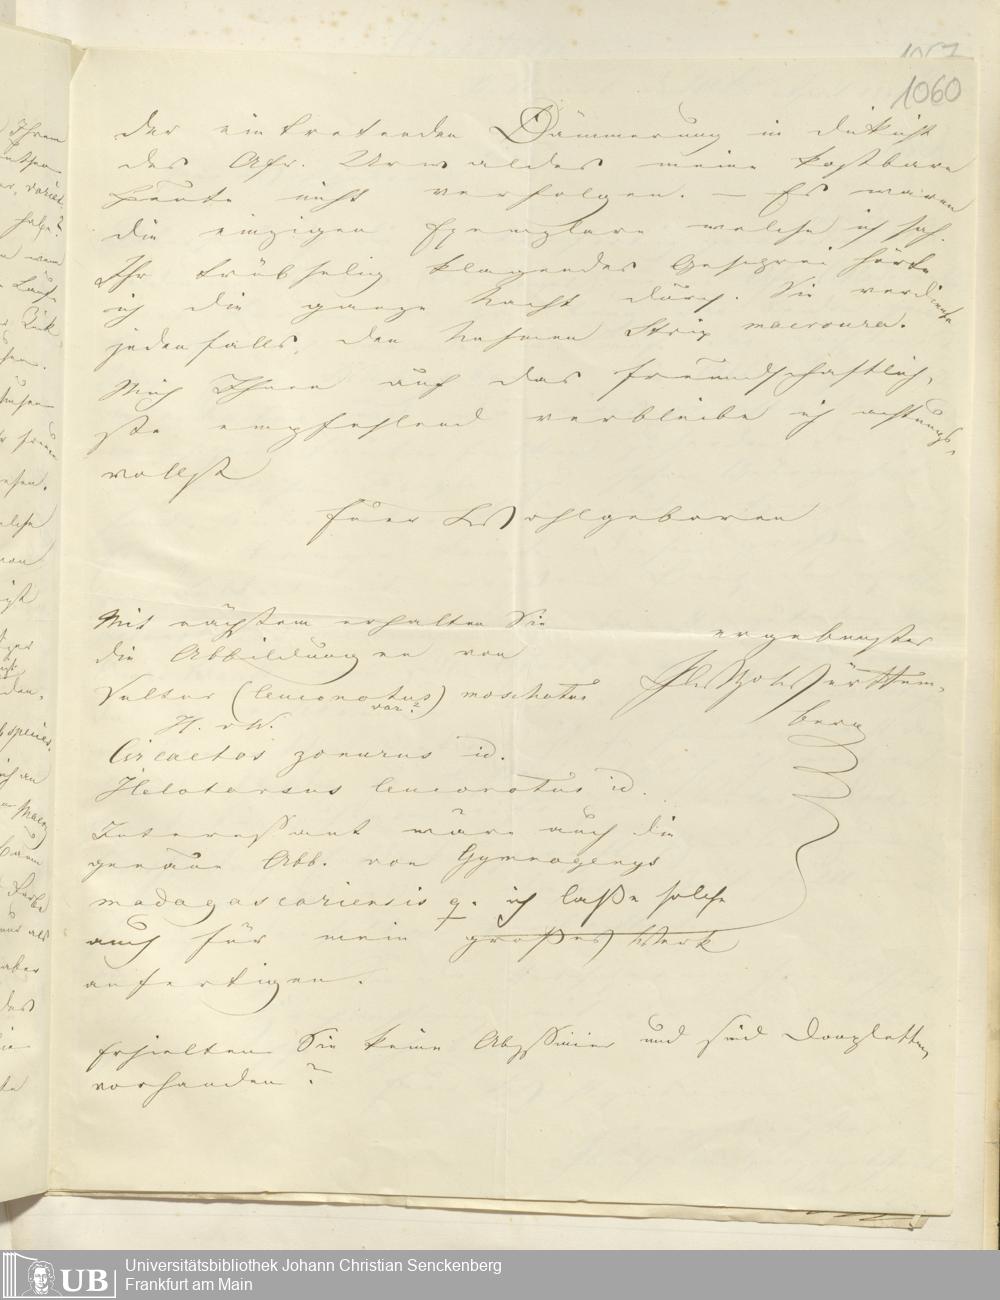 1057
1060
der eintretenden Dämmerung in dickicht
des Afr. Urwaldes meine kostbare
Beute nicht verfolgen. – Es waren
die einzigen Exemplare welche ich sah.
Ihr trübselig klagendes Geschrei hörte
ich die ganze Nacht durch. Sie verdiente
jedenfalls, den Nahmen Strix macroura.
Mich Ihnen auf das freundschaftlich-
ste empfehlend verbleibe ich achtungs-
vollst
Euer Wohlgeboren
ergebenster
Württem-
berg
Mit nächstem erhalten Sie
die Abbildungen von
Vultur (leuconotus) moschatus
var?
H. v W.
Circaetos zonurus id.
Helotarsus leuconotus id.
Interessant wäre auch die
genaue Abb. von Gymnogenys
madagascariensis q. ich laße solche
auch für mein großes Werk
anfertigen.
Erhielten Sie keine Abyssinier und sind Doupletten
vorhanden?
UB
Universitätsbibliothek Johann Christian Senckenberg
Frankfurt am Main